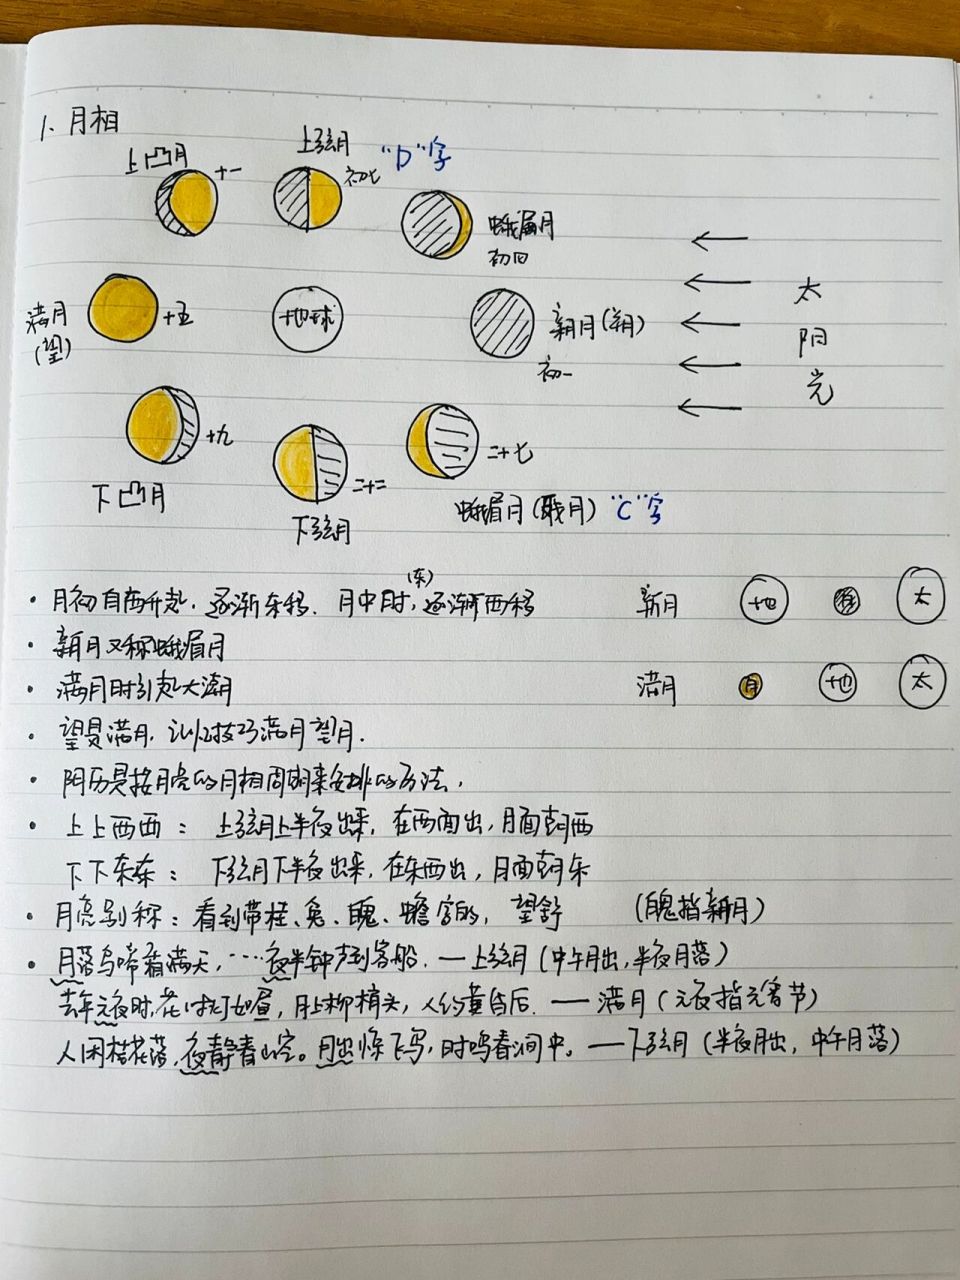 1、月相
上凸月 十一
上弦月 初七 “D”字
蛾眉月
初四
满月
(望)
十五
地球
新月(朔)
初一
太
阳
光
十九
下凸月
二十二
下弦月
二十七
蛾眉月(残月) “C”字
• 月初自西升起,逐渐东移.月中时,(东)逐渐西移
新月 地 月 太
• 新月又称蛾眉月
• 满月时引起大潮
满月 月 地 太
• 望是满月,记忆技巧满月望月.
• 阴历是按月亮的月相周期来安排的历法,
• 上上西西: 上弦月上半夜出来,在西面出,月面朝西
下下东东: 下弦月下半夜出来,在东面出,月面朝东
• 月亮别称:看到带桂、兔、魄、蟾字的,望舒 (魄指新月)
• 月落乌啼霜满天,……夜半钟声到客船.—上弦月(中午月出,半夜月落)
去年元夜时,花市灯如昼,月上柳梢头,人约黄昏后.—— 满月(元夜指元宵节)
人闲桂花落,夜静春山空。月出惊飞鸟,时鸣春涧中。—下弦月(半夜月出,中午月落)